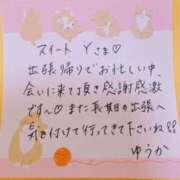 スイート Yさま♡
出張帰りでお忙しい中、
会いに来て頂き感謝感激
です〜♡また長期の出張へ
気を付けて行ってきて下さいね!!
ゆうか